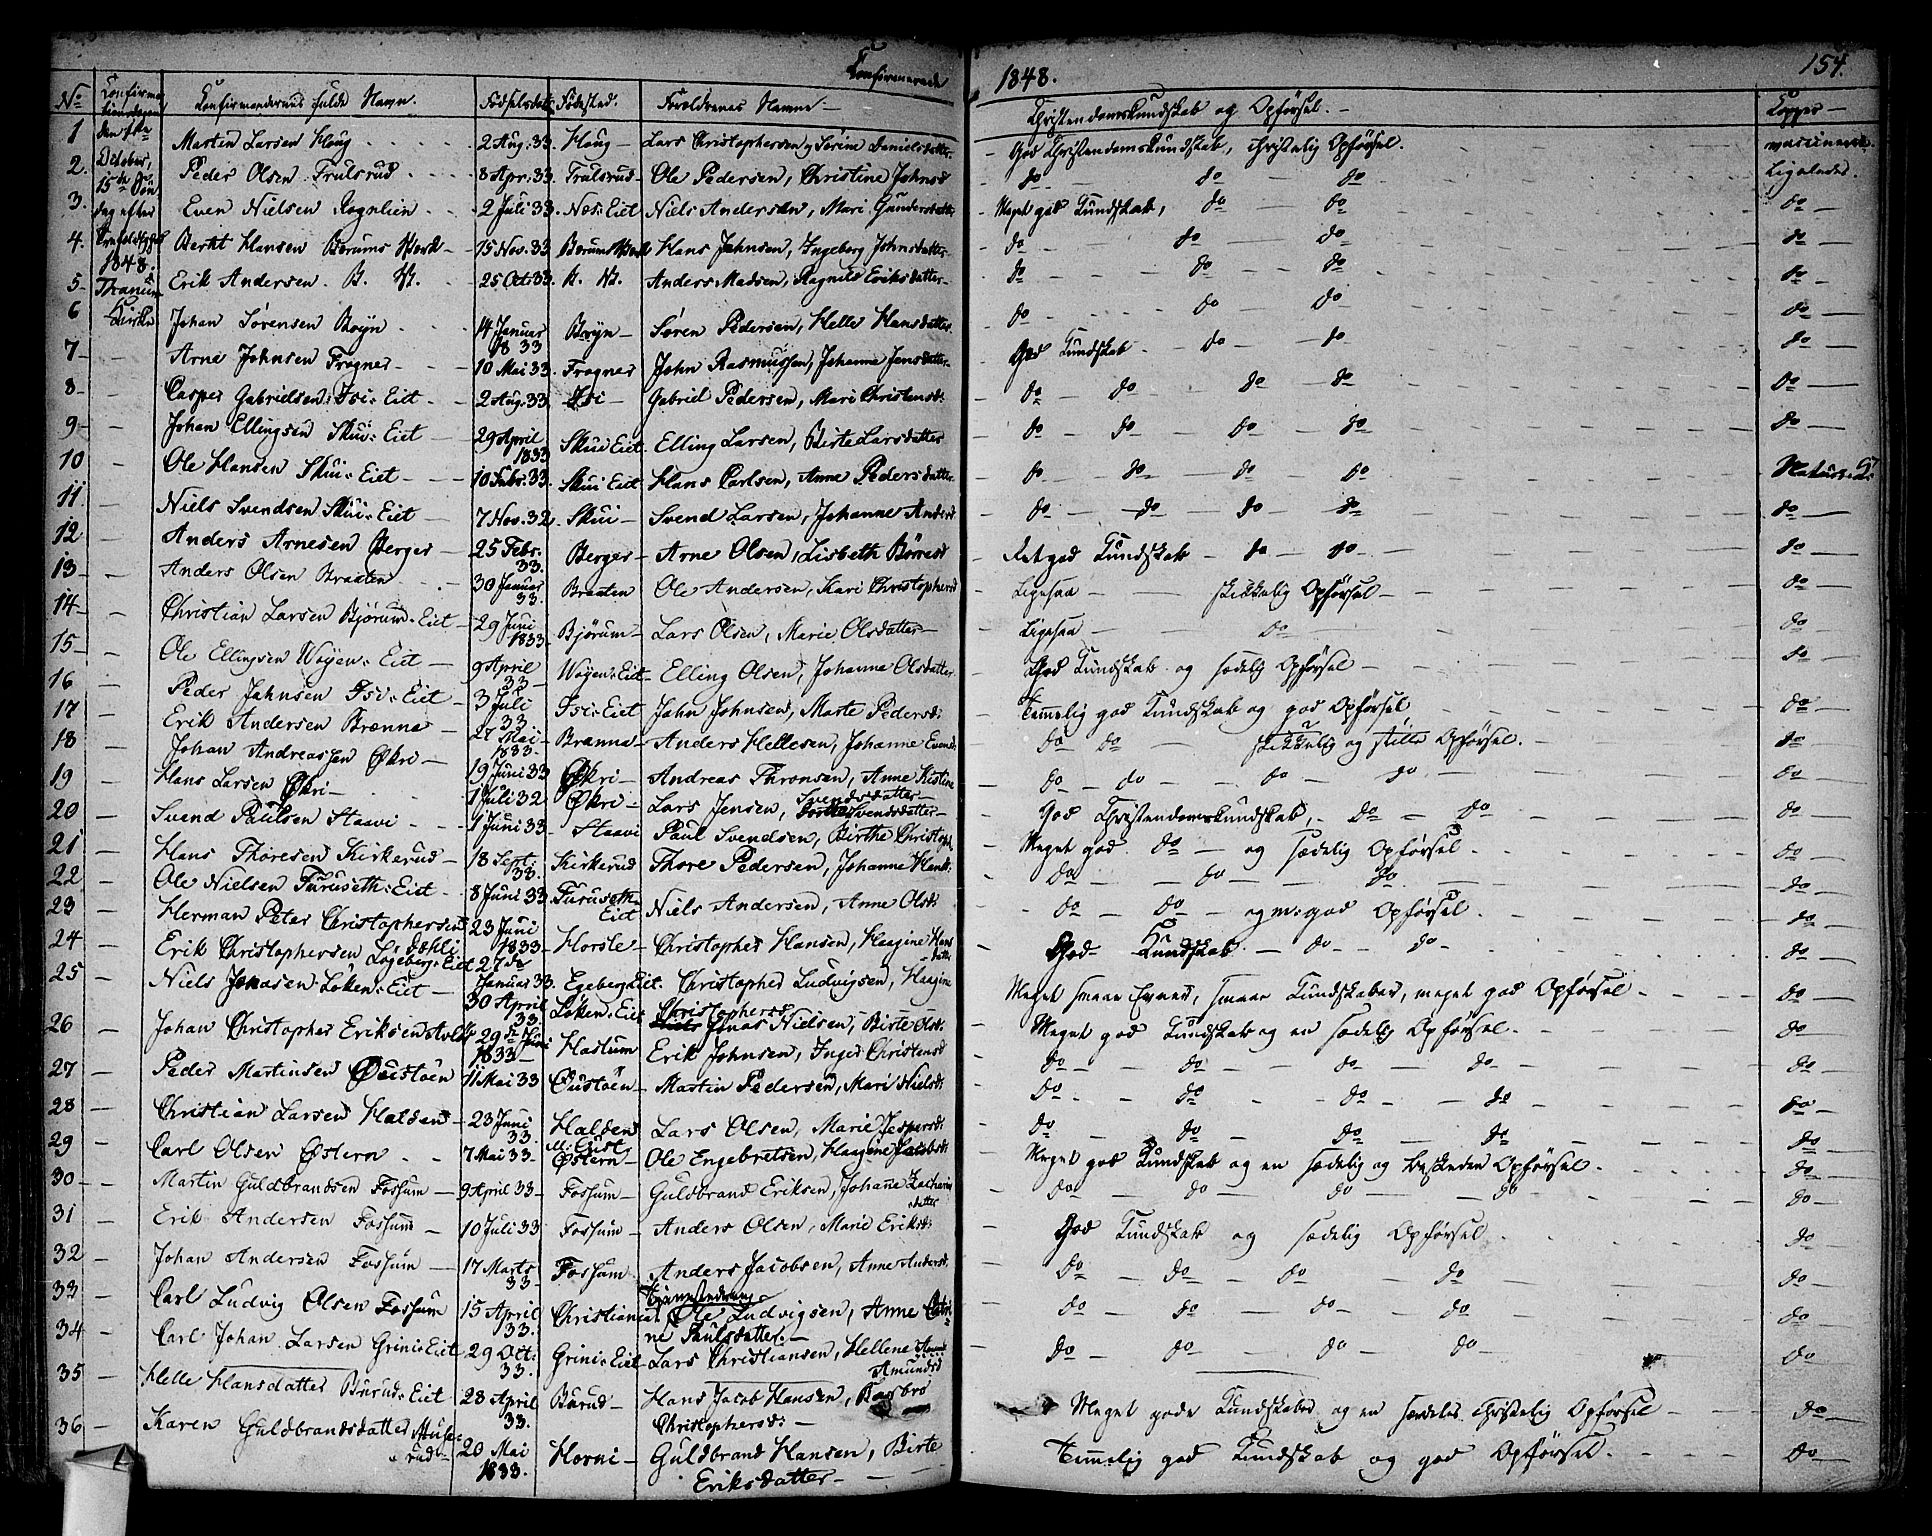 Confirmerede 1848. 154.
No Confirmationsdagen Confirmandernes fulde Navn. Fødselsdato Fødested. Forældrenes Navne – Christendomskundskab og Opførsel. – Kopper –
1 Martin Larsen Haug 2 Aug: 33. Haug – Lars Christophersen, Sørine Danielsdatter – God Christendomskundskab, christelig Opførsel.
2. October, Peder Olsen Trulsrud 8 Apr: 33. Trulsrud – Ole Pedersen, Christine Johnsd – do – do – do Ligeledes.
3. 15de Søn Even Nielsen 2 Juli 33. Næs: Eiet Niels Andersen, Mari Gundersdatter – Meget god Kundskab, do – do do –
dag efter
4. 1848. Bernt Hansen Bærums Værk – 15 Nov. 33 Bærums Værk Hans Jahnsen, Ingeborg Johnsdatter – do – do – do do –
5 – Tanum Erik Andersen B. V. 25 Oct: 33. B. V. Anders Madsen, Ragnild Eriksdatter – do – do – do do –
6 Kirke Johan Sørensen Bøyn 14 Januar 1833 Bøyn – Søren Pedersen, Helle Hansdatter do – do – do do –
7 – Arne Johnsen Frogner – 10 Mai 33. Frogner John Rasmussen, Johanne Jensdatter – God Kundskab – do – do do –
8 – Casper Gabrielsen Isi: Eiet 2 Aug: 33. Isi – Gabriel Pedersen, Mari Christensd: do – do – do – do do –
9 – Johan Ellingsen Skui: Eiet – 29 April 1833 Skui Eiet Elling Larsen, Birte Larsdatter do – do – do – do do –
10 – Ole Hansen Skui: Eiet – 10 Febr: 33. Skui Eiet Hans Carlsen, Anne Pedersdatter – do – do – do – do
11. – Niels Svendsen Skui: Eiet – 7 Nov. 32. Skui – Svend Larsen, Johanne Andersd do – do – do – do do –
12 – Anders Arnesen Berger – 25 Febr. 33. Berger – Arne Olsen, Lisbeth Børresd Ret god Kundskab – do – do – do –
13 – Anders Olsen Braaten 30 Januar 33. Braaten Ole Andersen, Kari Christophersd Ligesaa – skikkelig Opførsel – do –
14 – Christian Larsen Bjørum: Eiet – 29 Juni 1833 Bjørum – Lars Olsen, Marie Olsdatter – Ligesaa – do – do –
15 – Ole Ellingsen Wøyen: Eiet – 9 April 33 – Wøyen: Eiet – Elling Olsen, Johanne Olsdatter. God Kundskab og sædelig Opførsel – do –
16 – Peder Jahnsen Isi: Eiet – 3 Juli 33. Isi: Eiet John Johnsen, Marte Pedersd: Temmelig god Kundskab og god Opførsel do –
17 – Erik Andersen Brenna – 27 Mai 1833. Brenna – Anders Hellesen, Johanne Evensd: do do – skikkelig og stille Opførsel. – do –
18 – Johan Andreassen Økri – 19 Juni 33 Økri – Andreas Thronsen, Anne Kistine do – do – do – do – do –
19 – Hans Larsen Økri – 1 Juli 32 Økri – Lars Jensen, Svendsdatter – God Christendomskundskab, – do – do do –
20 – Svend Paulsen Staavi 1 Juni 33 – Staavi Paul Svendsen, Birthe Christoph. Meget god do – og sædelig Opførsel do –
21 – Hans Thoresen Kirkerud – 18 Sept: 33. Kirkerud Thore Pedersen, Johanne Hansd: do – do – do do –
22 – Ole Nielsen Furuseth: Eiet – 8 Juni 33 Furuseth Eiet Niels Andersen, Anne Olsd: do – do – og m: god Opførsel. do –
23 – Herman Peter Christophersen Dæhli 23 Juni 1833 – Horsle – Christopher Hansen, Haagine Hansdatter God Kundskab – do – do – do –
24 – Erik Christophersen Løgeberg: Eiet 27de Januar 33. Egeberg Eiet. Christopher Ludvigsen, Haagine Christophersd Meget smaae Evner, smaae Kundskaber, meget god Opførsel – do –
25 – Niels Jonasen Løken: Eiet – 30 April 33 Løken: Eiet Jonas Nielsen, Birte Olsd: Meget god Kundskab og en sædelig Opførsel. – do –
26 – Johan Christopher Eriksen 29de Juni 1833 – Haslum Erik Johnsen, Inger Christensd do – do – do – do – do –
27 – Peder Martinsen Øustøen 11 Mai 33 Øustøen – Martin Pedersen, Mari Nielsd: do – do – do – do do –
28 – Christian Larsen Halden – 23 Juni 33. Halden Lars Olsen, Marie Jespersd: do – do – do – do do –
29 – Carl Olsen Østern 7 Mai 33 – Østern – Ole Engebretsen, Haagine Jacobsd: Meget god Kundskab og en sædelig og beskeden Opførsel. do –
30 – Martin Guldbrandsen Fossum – 9 April 33 – Fossum – Guldbrand Eriksen, Johanne Zacharias datter do – do – do – do do –
31 – Erik Andersen Fossum – 10 Juli 33 Fossum – Anders Olsen, Marie Eriksd: God Kundskab og sædelig Opførsel do –
32 – Johan Andersen Fossum – 17 Marts 33 – Fossum Anders Jacobsen, Anne Andersd. do – do – do – do do –
33 – Carl Ludvig Olsen Fossum 15 April 33. Christiania Ole Ludvigsen, Anne Catrine Paulsdatter. – do – do – do – do do –
34 – Carl Johan Larsen Grini: Eiet 29 Oct: 33. Grini: Eiet – Lars Christiansen, Hellene Amundsd do – do – do – do do –
35 – Helle Hansdatter Burud: Eiet 28 April 33. Burud – Hans Jacob Hansen, Barbro Christophersd: – Meget gode Kundskaber og en særdeles christelig Opførsel – do –
36 – Karen Guldbrandsdatter 20 Mai 1833. Horni – Guldbrand Hansen, Birte Eriksdatter – Temmelig god Kundskab og god Opførsel. do –